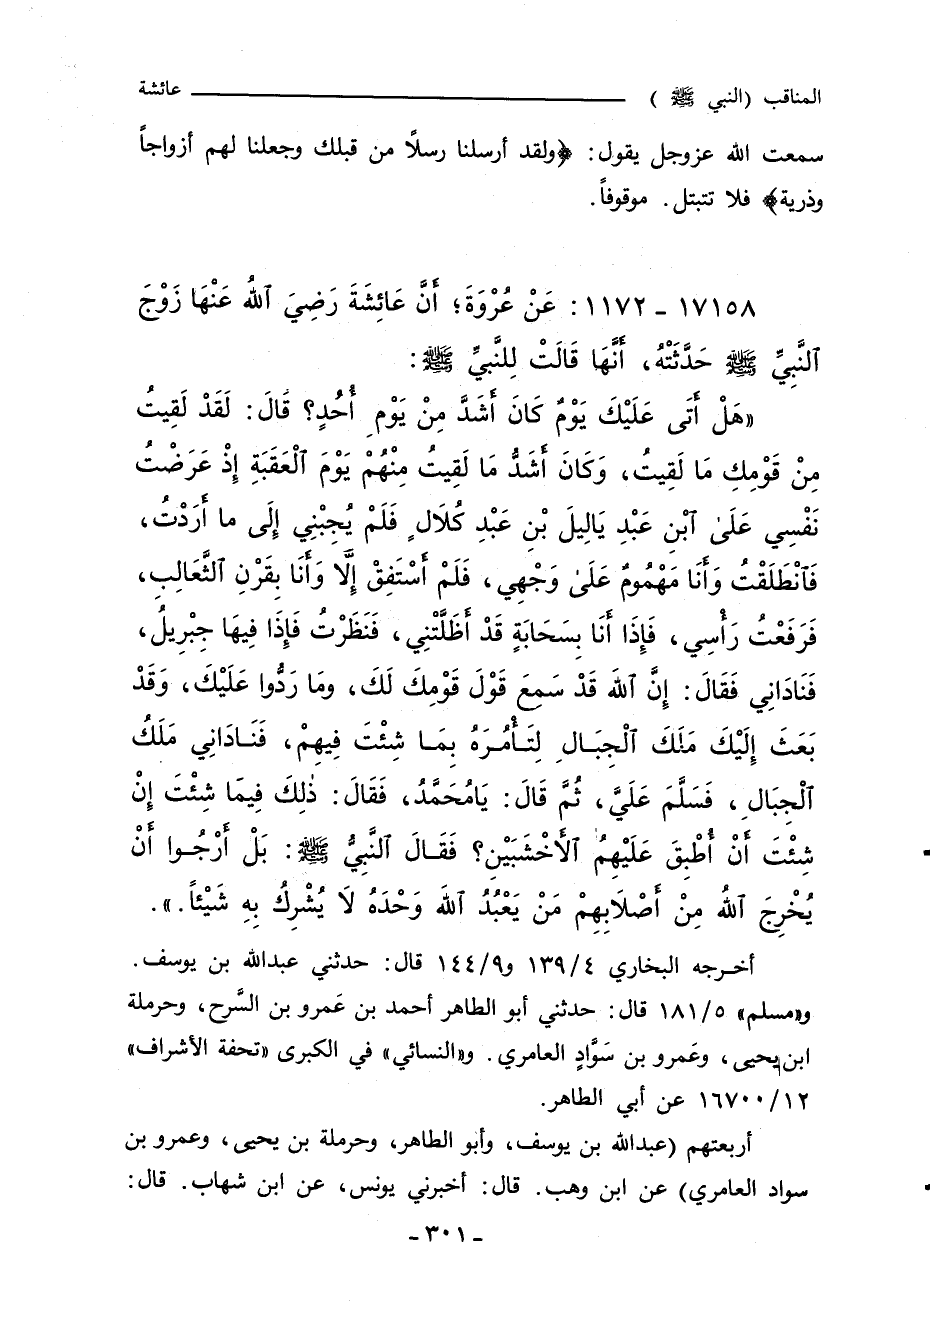 المناقب (النبي ﷺ) عائشة
سمعت الله عزوجل يقول: ﴿ولقد أرسلنا رسلاً من قبلك وجعلنا لهم أزواجاً
وذرية﴾ فلا تتبتل. موقوفاً.
١٧١٥٨ - ١١٧٢: عَنْ عُرْوَةَ؛ أَنَّ عَائِشَةَ رَضِيَ ٱللهُ عَنْهَا زَوْجَ
ٱلنَّبِيِّ ﷺ حَدَّثَتْهُ، أَنَّهَا قَالَتْ لِلنَّبِيِّ ﷺ:
«هَلْ أَتَى عَلَيْكَ يَوْمٌ كَانَ أَشَدَّ مِنْ يَوْمِ أُحُدٍ؟ قَالَ: لَقَدْ لَقِيتُ
مِنْ قَوْمِكِ مَا لَقِيتُ، وَكَانَ أَشَدُّ مَا لَقِيتُ مِنْهُمْ يَوْمَ ٱلْعَقَبَةِ إِذْ عَرَضْتُ
نَفْسِي عَلَىٰ ٱبْنِ عَبْدِ يَالِيلَ بْنِ عَبْدِ كُلَالٍ فَلَمْ يُجِبْنِي إِلَى ما أَرَدْتُ،
فَٱنْطَلَقْتُ وَأَنَا مَهْمُومٌ عَلَىٰ وَجْهِي، فَلَمْ أَسْتَفِقْ إِلَّا وَأَنَا بِقَرْنِ ٱلثَّعَالِبِ،
فَرَفَعْتُ رَأْسِي، فَإِذَا أَنَا بِسَحَابَةٍ قَدْ أَظَلَّتْنِي، فَنَظَرْتُ فَإِذَا فِيهَا جِبْرِيلُ،
فَنَادَانِي فَقَالَ: إِنَّ ٱللهَ قَدْ سَمِعَ قَوْلَ قَوْمِكَ لَكَ، ومَا رَدُّوا عَلَيْكَ، وَقَدْ
بَعَثَ إِلَيْكَ مَلَكَ ٱلْجِبَالِ لِتَأْمُرَهُ بِمَا شِئْتَ فِيهِمْ، فَنَادَانِي مَلَكُ
ٱلْجِبَالِ، فَسَلَّمَ عَلَيَّ، ثُمَّ قَالَ: يَامُحَمَّدُ، فَقَالَ: ذٰلِكَ فِيمَا شِئْتَ إِنْ
شِئْتَ أَنْ أُطْبِقَ عَلَيْهِمُ ٱلْأَخْشَبَيْنِ؟ فَقَالَ ٱلنَّبِيُّ ﷺ: بَلْ أَرْجُوا أَنْ
يُخْرِجَ ٱللهُ مِنْ أَصْلَابِهِمْ مَنْ يَعْبُدُ ٱللهَ وَحْدَهُ لَا يُشْرِكُ بِهِ شَيْئاً.».
أخرجه البخاري ١٣٩/٤ و١٤٤/٩ قال: حدثني عبدالله بن يوسف.
و«مسلم» ١٨١/٥ قال: حدثني أبو الطاهر أحمد بن عَمرو بن السَّرح، وحرملة
ابن يحيى، وعَمرو بن سَوَّادٍ العامري. و«النسائي» في الكبرى «تحفة الأشراف»
١٦٧٠٠/١٢ عن أبي الطاهر.
أربعتهم (عبدالله بن يوسف، وأبو الطاهر، وحرملة بن يحيى، وعمرو بن
سواد العامري) عن ابن وهب. قال: أخبرني يونس، عن ابن شهاب. قال:
- ٣٠١ -